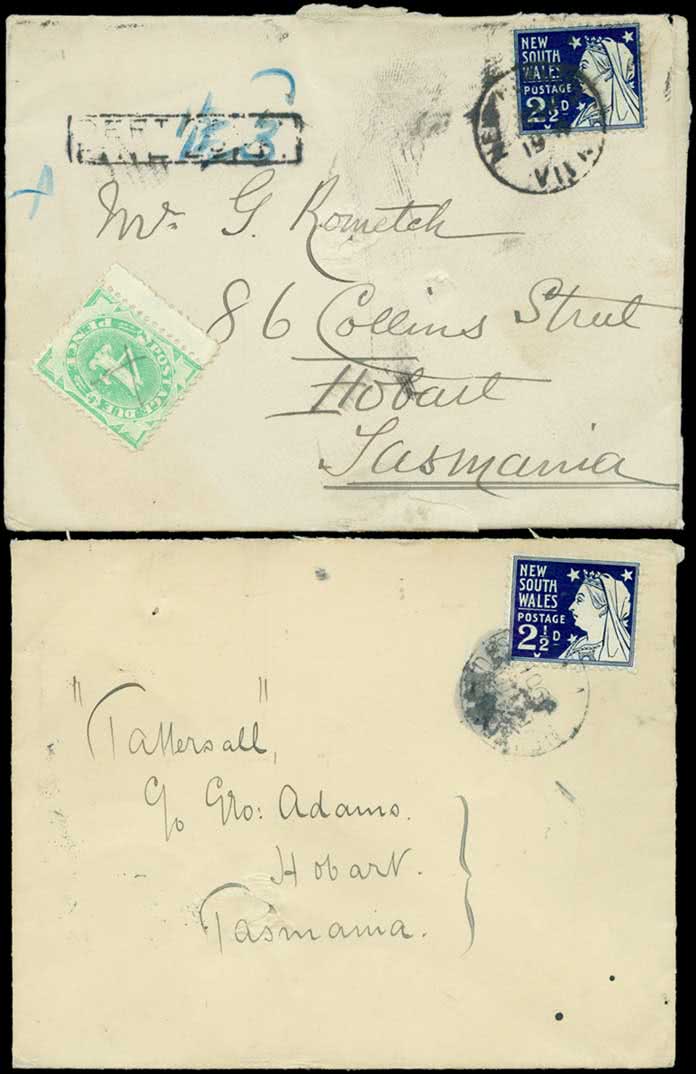 NEW
SOUTH
WALES
POSTAGE
2½D
Mr. G. Rometch
86 Collins Street
Hobart
Tasmania
POSTAGE DUE
4
PENCE
NEW
SOUTH
WALES
POSTAGE
2½D
"Tattersall",
c/o Geo: Adams.
Hobart.
Tasmania.